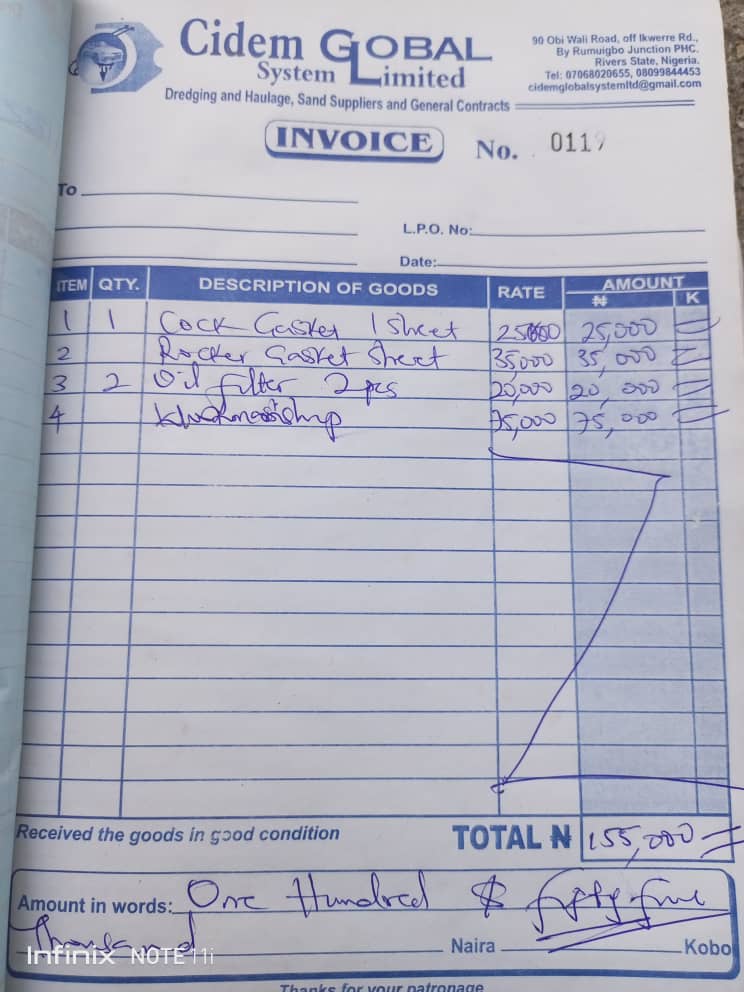 Cidem GLOBAL
System Limited
Dredging and Haulage, Sand Suppliers and General Contracts
90 Obi Wali Road, off Ikwerre Rd.,
By Rumuigbo Junction PHC.
Rivers State, Nigeria.
Tel: 07068020655, 08099844453
cidemglobalsystemltd@gmail.com
INVOICE No. 0119
To
L.P.O. No:
Date:
ITEM QTY. DESCRIPTION OF GOODS RATE AMOUNT
₦ K
1 1 Cock Gasket 1 Sheet 25000 25,000 =
2 Rocker Gasket Sheet 35000 35,000 =
3 2 Oil filter 2 pcs 20,000 20,000 =
4 75,000 75,000 =
Received the goods in good condition TOTAL ₦ 155,000 =
Amount in words: One Hundred & fifty five
Thousand Naira Kobo
Infinix NOTE 11i
Thanks for your patronage